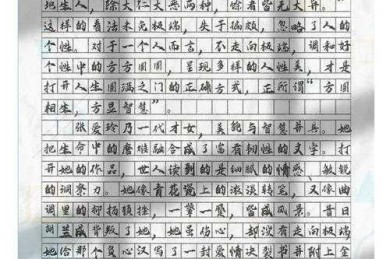 地生人，除大仁大恶两种，馀者皆无大异。"
这样的看法未免极端，失于偏颇，忽略了人的
个性。对于一个人而言，不走向极端，调和好
个性中的方方圆圆，呈现多样的人性美，才是
打开人生圆满之门的正确方式，正所谓"方圆
相生，方显智慧"。
张爱玲乃一代才女，美能与智慧并具。她
把生命中的磨难融合成了富有韧性的文字。打
开她的作品，世人读到的是细腻的情感、敏锐
的洞察力。她像青花瓷上的浓淡转笔，又像曲
调里的抑扬顿挫，一擎一魇，皆成风景。昔日
胡兰成背叛了她，她虽伤心，却没有走向极端
她给那个负心汉写了一封爱情决裂书并附上金